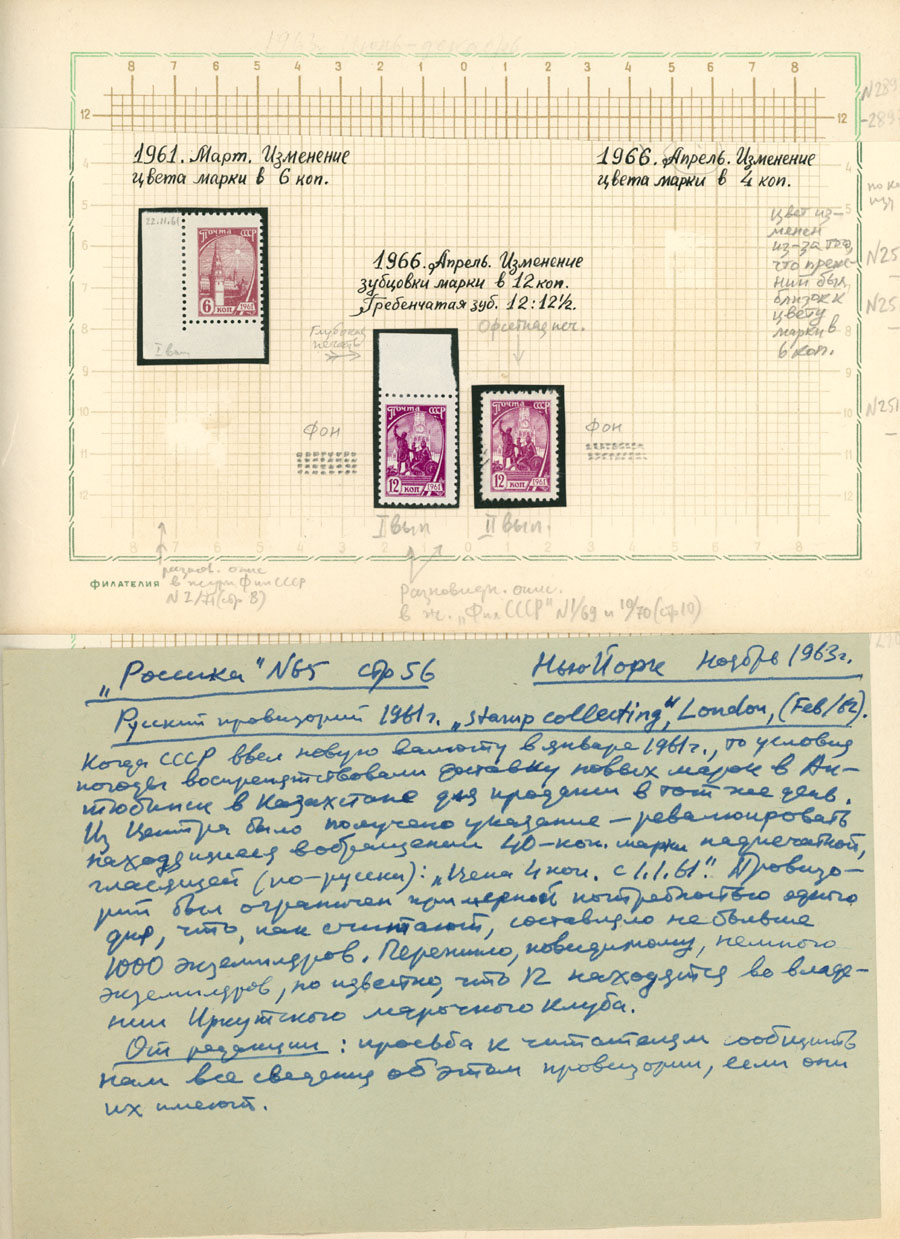 1963. Июль-декабрь
8 7 6 5 4 3 2 1 0 1 2 3 4 5 6 7 8
12 12
1961. Март. Изменение
цвета марки в 6 коп.
1966. Апрель. Изменение
цвета марки в 4 коп.
22.11.61
Почта СССР
6 коп 1961
I вып
цвет из-
менен
из-за того,
что преж-
ний был
близок к
цвету
марки в
6 коп.
N25
N25
N251
1966. Апрель. Изменение
зубцовки марки в 12 коп.
Гребенчатая зуб. 12:12½.
Глубокая
печать
Офсетная печ.
фон
фон
Почта СССР
12 коп 1961
Почта СССР
12 коп 1961
I вып
II вып.
ФИЛАТЕЛИЯ
разнов. опис
в журн Фил СССР
N2/71 (стр 8)
Разновидн. опис.
в ж. „Фил СССР" N1/69 и 10/70 (стр 10)
„Россика" N65 стр 56 Нью Йорк ноябрь 1963г.
Русский провизорий 1961г. „Stamp collecting", London, (Feb/62).
Когда СССР ввел новую валюту в январе 1961г., то условия
погоды воспрепятствовали доставку новых марок в Ак-
тюбинск в Казахстане для продажи в тот же день.
Из Центра было получено указание – ревалюировать
находящиеся в обращении 40-коп. марки надпечаткой,
гласящей (по-русски): „Цена 4 коп. с 1.1.61". Провизо-
рий был ограничен примерной потребностью одного
дня, что, как считают, составляло не больше
1000 экземпляров. Пережило, повидимому, немного
экземпляров, но известно, что 12 находятся во владе-
нии Иркутского марочного клуба.
От редакции: просьба к читателям сообщить
нам все сведения об этом провизории, если они
их имеют.